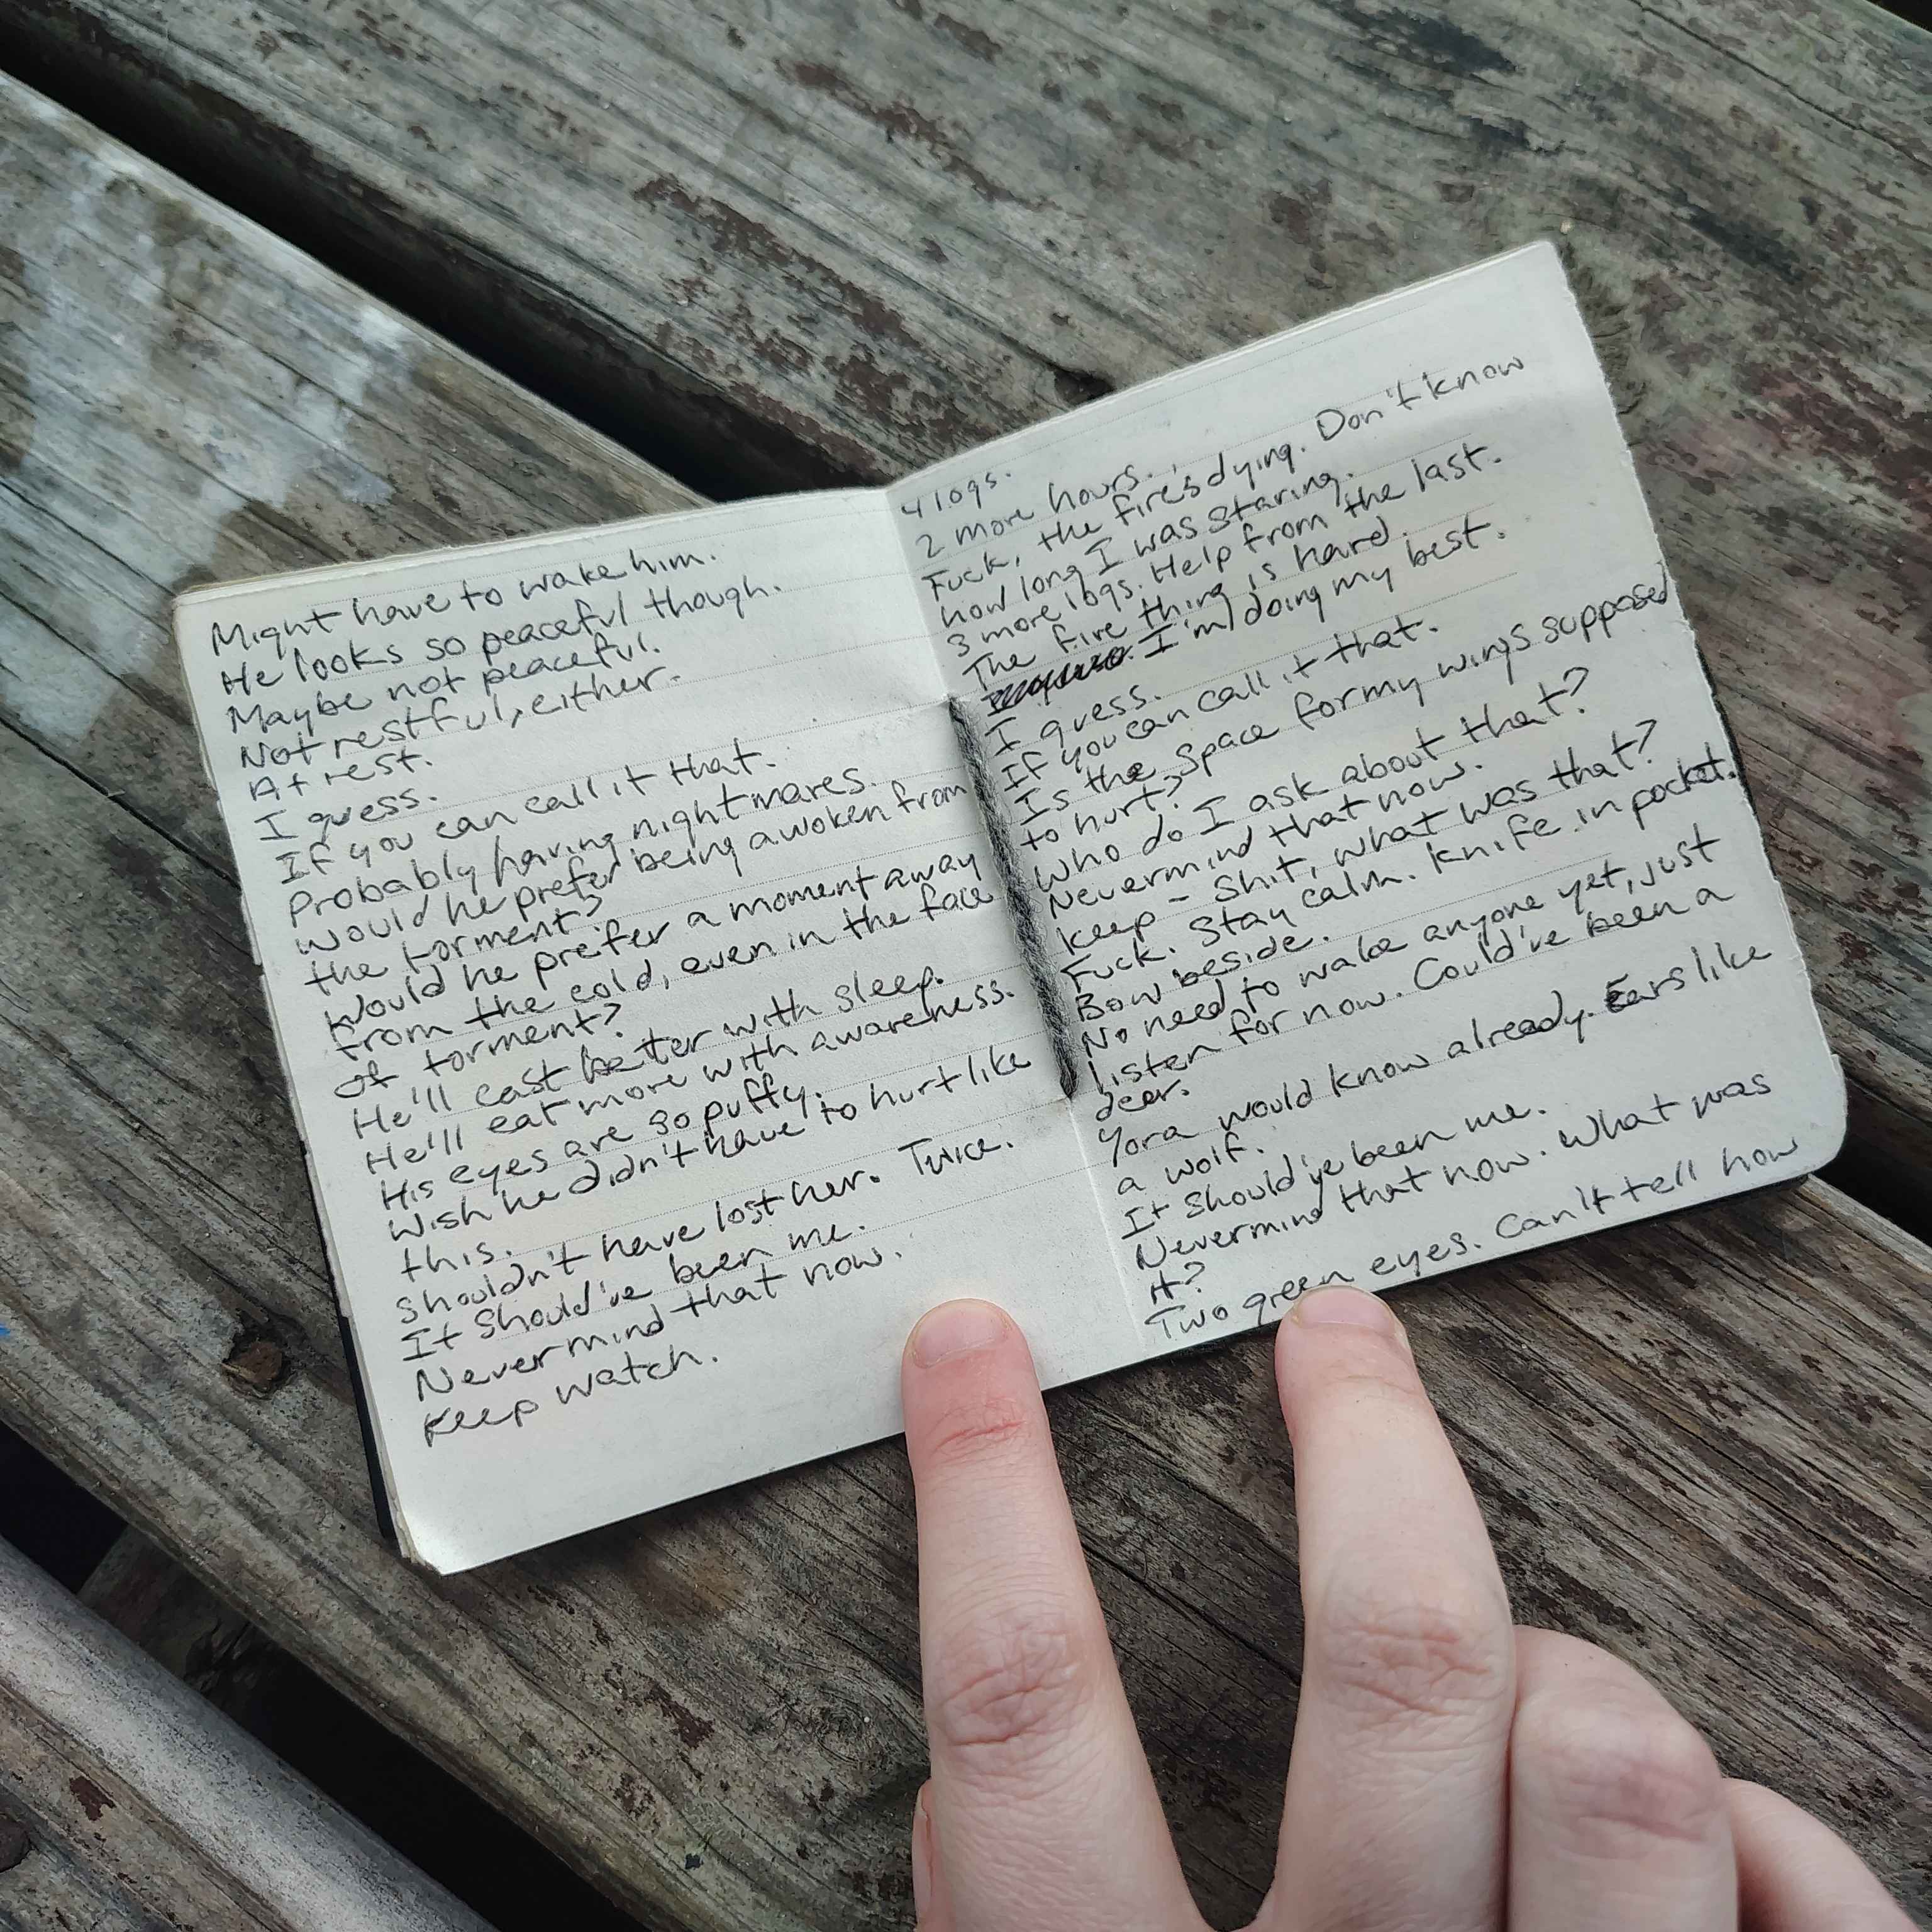 Might have to wake him.
He looks so peaceful though.
Maybe not peaceful.
Not restful, either.
At rest.
I guess.
If you can call it that.
Probably having nightmares.
Would he prefer being awoken from
the torment?
Would he prefer a moment away
from the cold, even in the face
of torment?
He'll cast better with sleep.
He'll eat more with awareness.
His eyes are so puffy.
Wish he didn't have to hurt like
this.
Shouldn't have lost her. Twice.
It should've been me.
Nevermind that now.
Keep watch.
4 logs.
2 more hours.
Fuck, the fire's dying. Don't know
how long I was staring.
3 more logs. Help from the last.
The fire thing is hard.
I'm doing my best.
I guess.
If you can call it that.
Is the space for my wings supposed
to hurt?
Who do I ask about that?
Nevermind that now.
Keep - Shit, what was that?
Fuck. Stay calm. Knife in pocket.
Bow beside.
No need to wake anyone yet, just
listen for now. Could've been a
deer.
Yora would know already. Ears like
a wolf.
It should've been me.
Nevermind that now. What was
it?
Two green eyes. Can't tell how